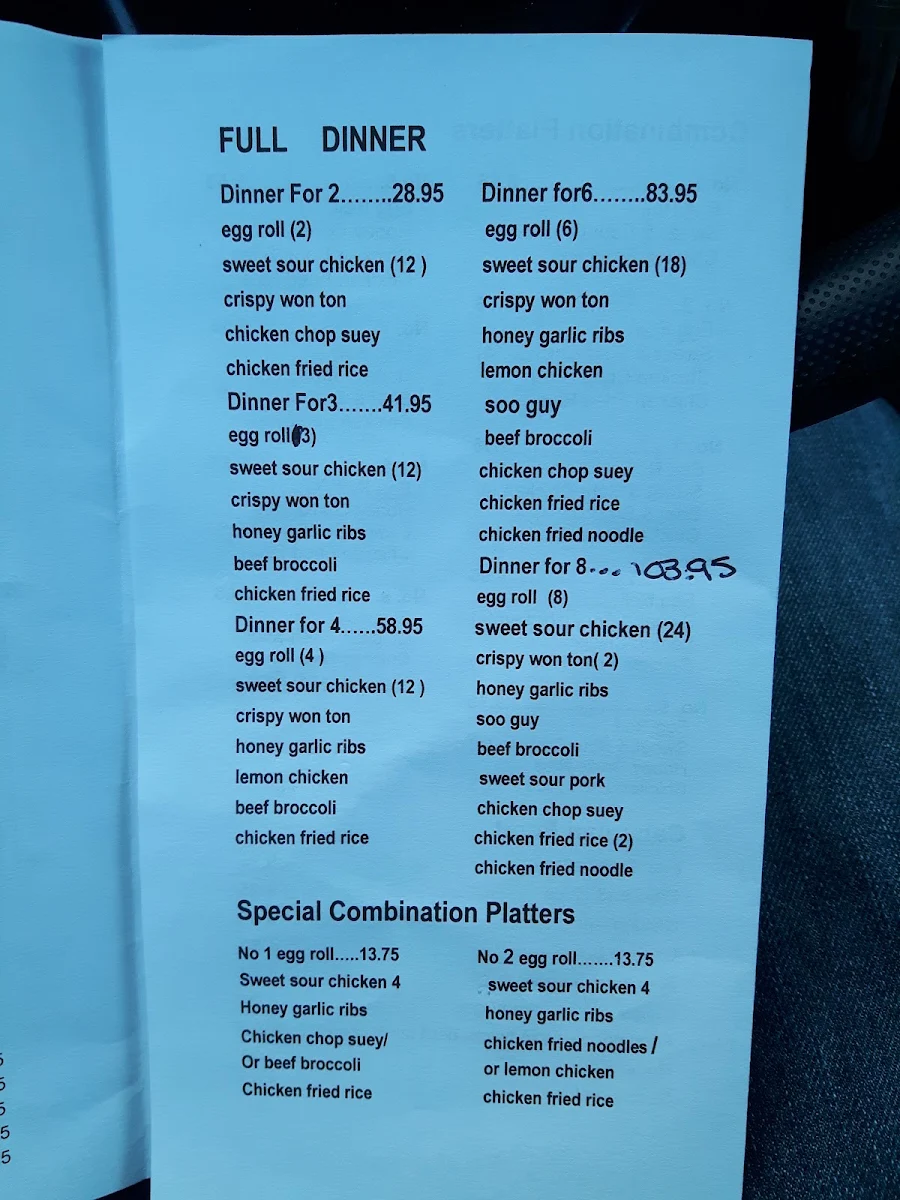 FULL DINNER
Dinner For 2........28.95
egg roll (2)
sweet sour chicken (12 )
crispy won ton
chicken chop suey
chicken fried rice
Dinner For3.......41.95
egg roll(3)
sweet sour chicken (12)
crispy won ton
honey garlic ribs
beef broccoli
chicken fried rice
Dinner for 4......58.95
egg roll (4 )
sweet sour chicken (12 )
crispy won ton
honey garlic ribs
lemon chicken
beef broccoli
chicken fried rice
Dinner for6........83.95
egg roll (6)
sweet sour chicken (18)
crispy won ton
honey garlic ribs
lemon chicken
soo guy
beef broccoli
chicken chop suey
chicken fried rice
chicken fried noodle
Dinner for 8.... 103.95
egg roll (8)
sweet sour chicken (24)
crispy won ton( 2)
honey garlic ribs
soo guy
beef broccoli
sweet sour pork
chicken chop suey
chicken fried rice (2)
chicken fried noodle
Special Combination Platters
No 1 egg roll.....13.75
Sweet sour chicken 4
Honey garlic ribs
Chicken chop suey/
Or beef broccoli
Chicken fried rice
No 2 egg roll.......13.75
sweet sour chicken 4
honey garlic ribs
chicken fried noodles /
or lemon chicken
chicken fried rice
5
5
5
5
5